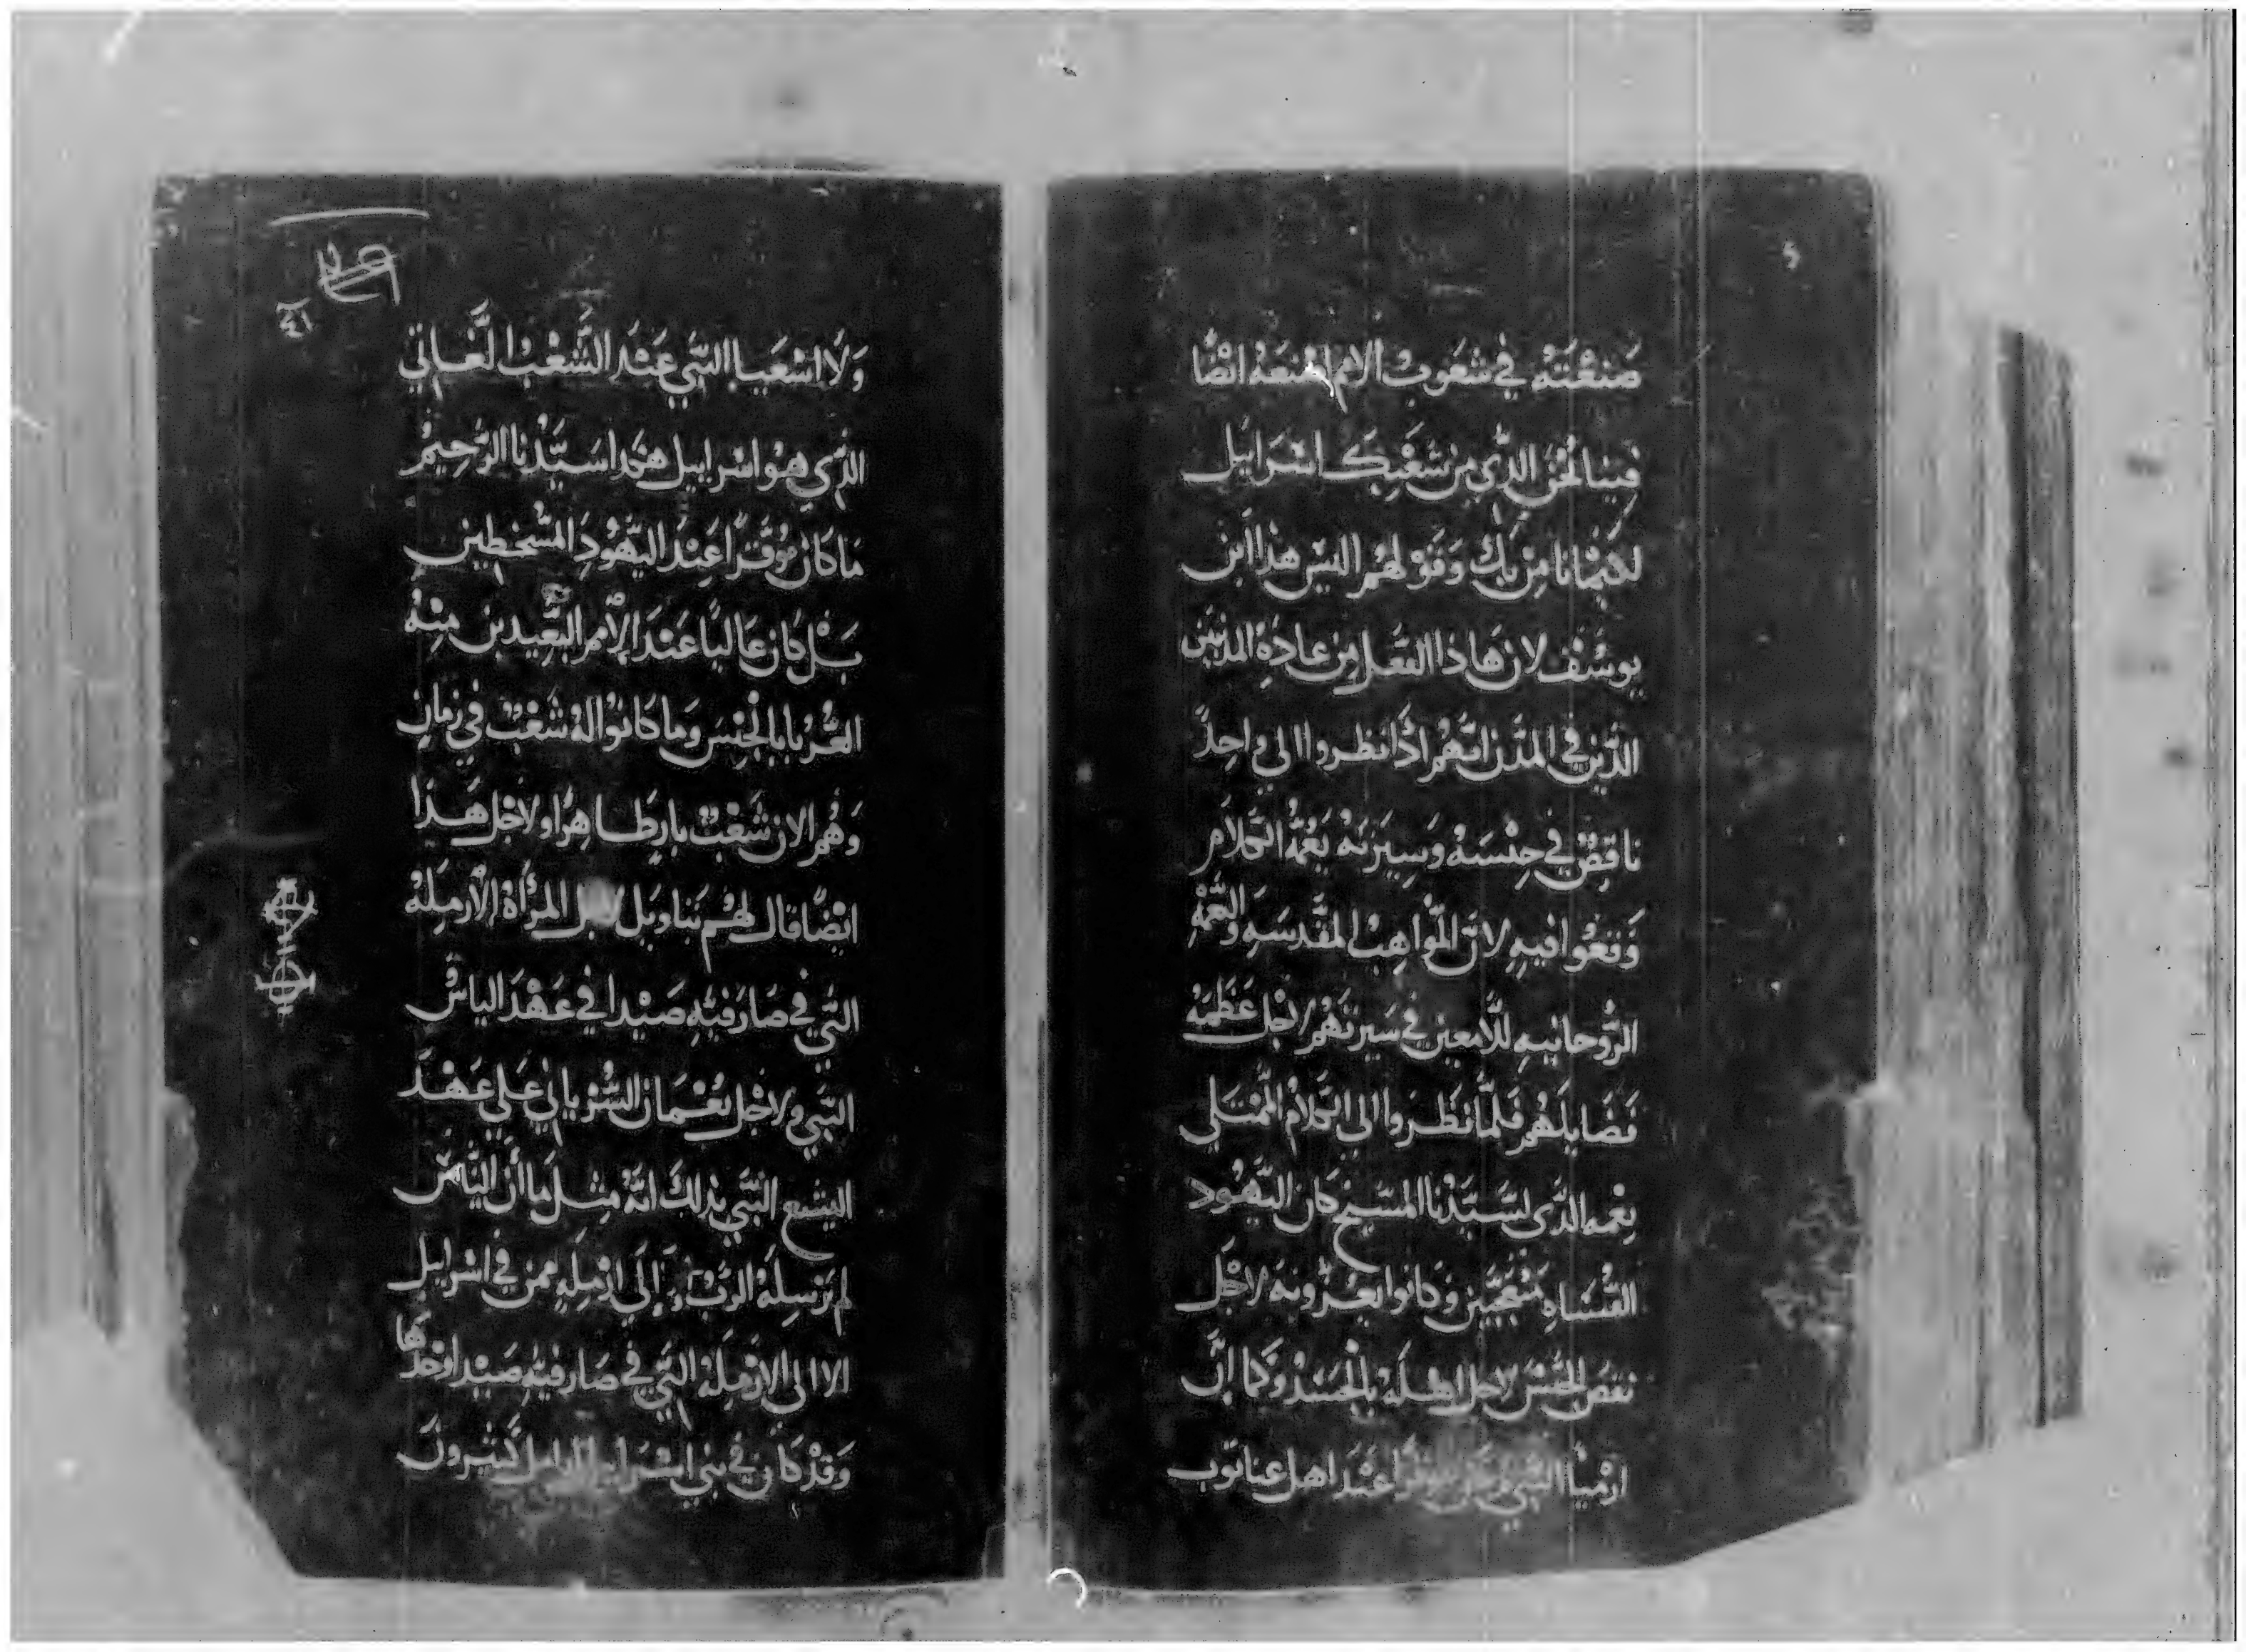 صَنَعْتَهُ في شعوب الامم اصنعهُ ايضًا
فينا نحن الذي من شعبك اسرايل
لايماننا بك وقولهم اليس هذا ابن
يوسُف لان هاذا الفعل من عادة المدنيين
الذين في المدن انهم اذا نظروا الي واحد
ناقص في جنسه وسيرته بعُمة الكلام
وقعوا فيه لان المواهب المقدسه والنعمه
الرُوحانيه للامعين في سيرتهم لاجل عَظَمَة
فضايلهم فلما نظروا الى الكلام الممتلي
نعمه الذي لسيدنا المسيح كان اليهود
القساه متعجبين وكانوا يعيرونه لاجل
نقص الجنس لاجل اهله بالجسد وكما ان
ارميا النبي عند اهل عناتوب
ولا اشعيا النبي عند الشعب العاتي
الذي هو اسراييل هكذا سيدنا الرحيم
ما كان موقرًا عند اليهود المسخطين
بل كان عاليًا عند الأمم البعيدين منه
الغُربا بالجنس وما كانوا له شعب في زمان
وهُم الان شعب بار طاهرًا ولاجل هذا
ايضًا قال لهم بتاويل لاجل المرأة الأرمله
التي في صارفية صيدا في عهد الياس
النبي ولاجل نعمان السُرياني علي عهد
اليشع النبي بذلك انه مثل ما أن الياس
لم يرسله الرب إلى ارمله ممن في اسرايل
الا الى الارمله التي في صارفية صيدا وحدها
وقد كان في بني اسرايل ارامل كثيرون